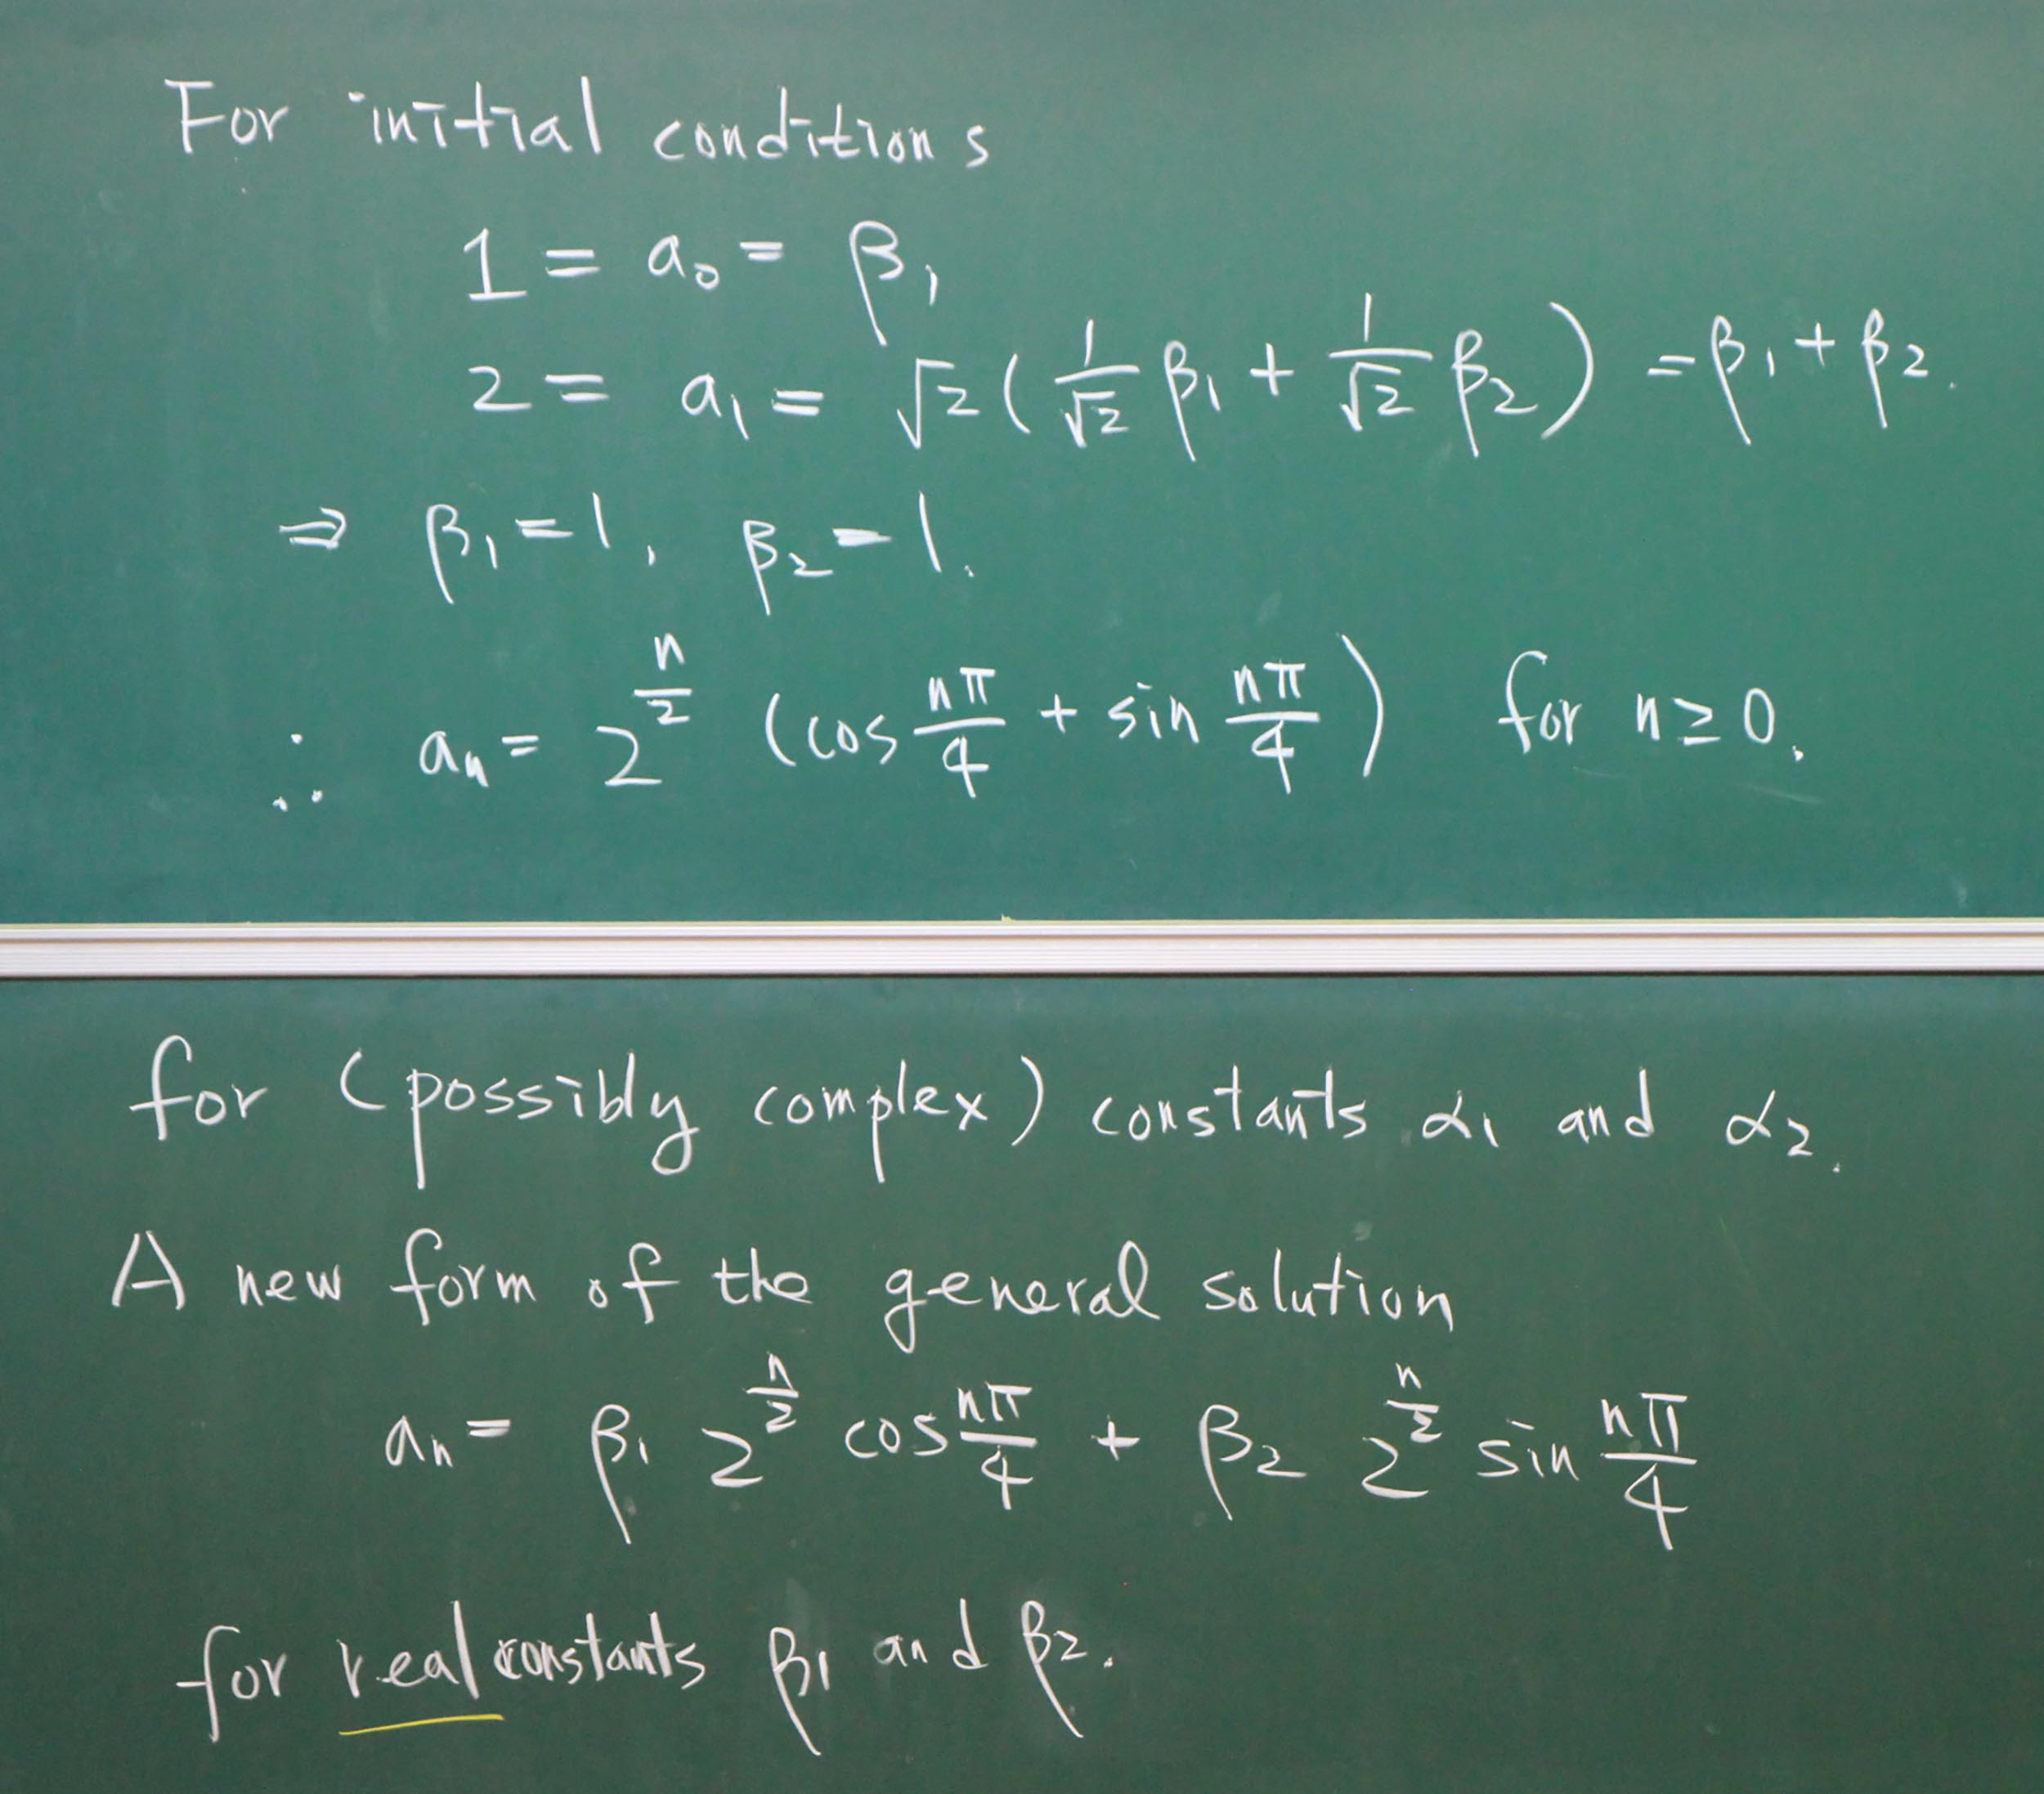 For initial conditions
1 = a₀ = β₁
2 = a₁ = √2 ( 1/√2 β₁ + 1/√2 β₂ ) = β₁ + β₂.
⇒ β₁ = 1, β₂ = 1.
∴ aₙ = 2^(n/2) (cos nπ/4 + sin nπ/4) for n ≥ 0.
for (possibly complex) constants α₁ and α₂.
A new form of the general solution
aₙ = β₁ 2^(n/2) cos nπ/4 + β₂ 2^(n/2) sin nπ/4
for real constants β₁ and β₂.